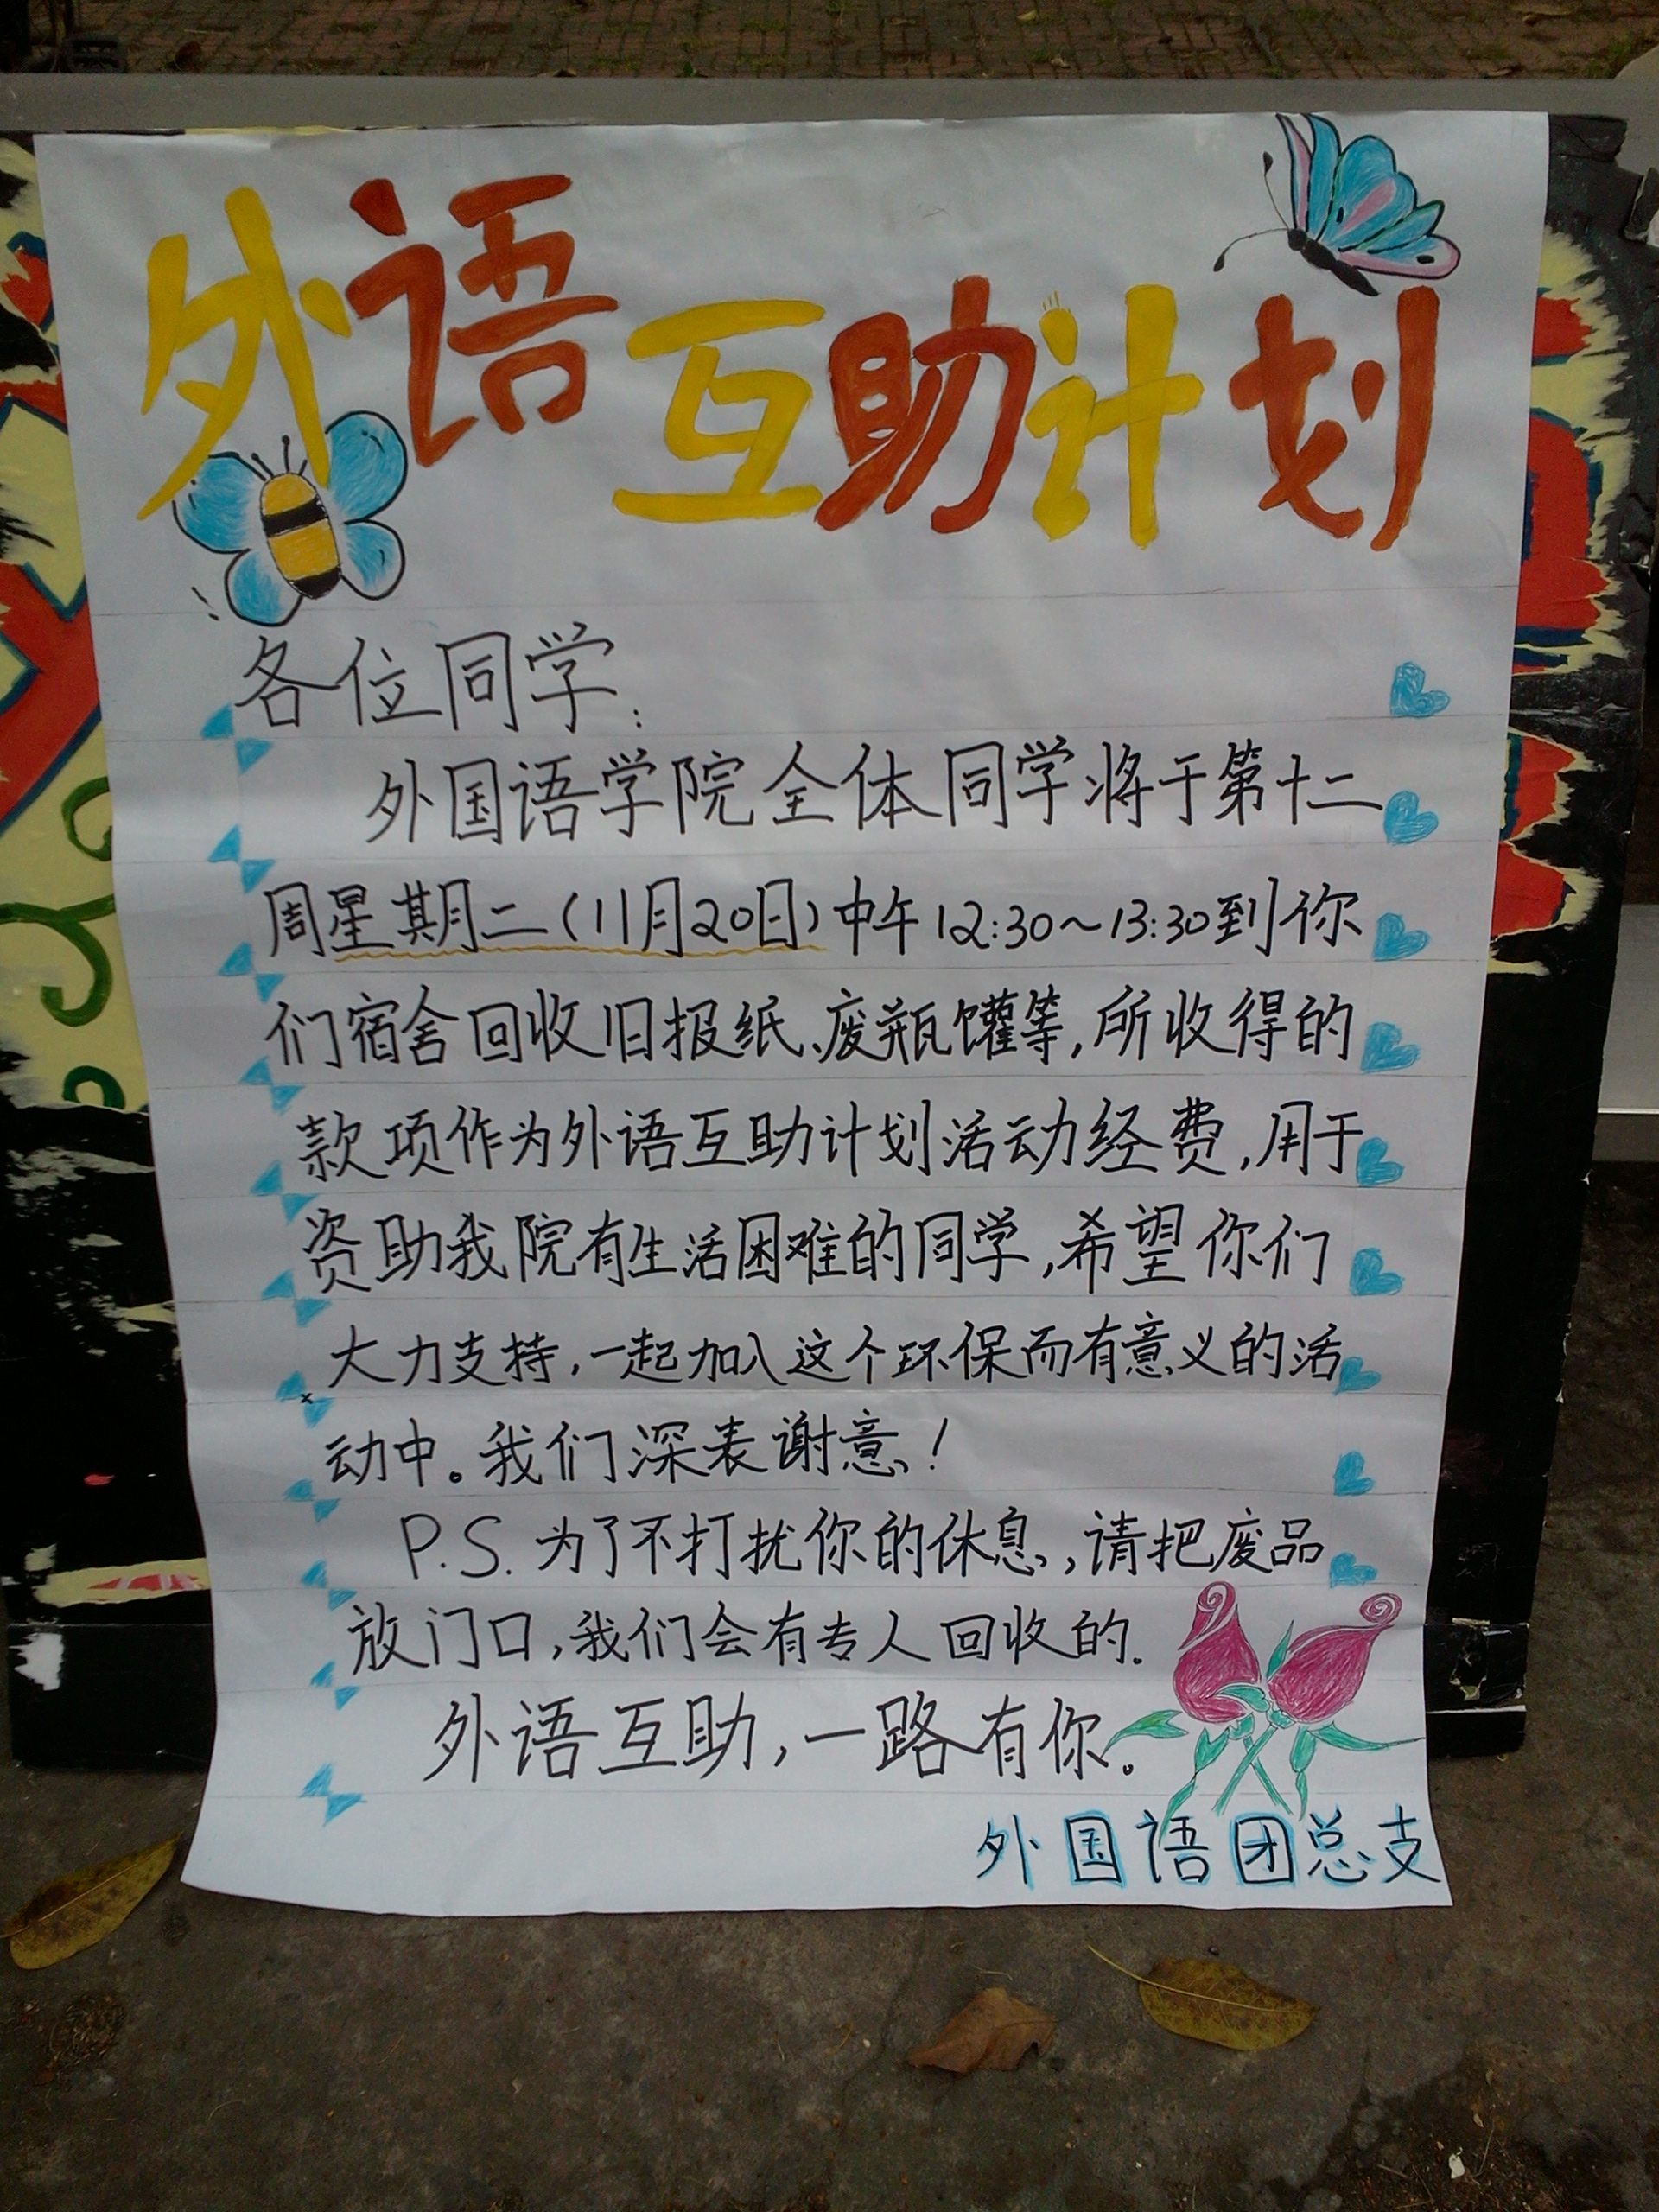 外语互助计划
各位同学:
外国语学院全体同学将于第十二
周星期二(11月20日)中午12:30~13:30到你
们宿舍回收旧报纸、废瓶罐等,所收得的
款项作为外语互助计划活动经费,用于
资助我院有生活困难的同学,希望你们
大力支持,一起加入这个环保而有意义的活
动中。我们深表谢意!
P.S.为了不打扰你的休息,请把废品
放门口,我们会有专人回收的.
外语互助,一路有你。
外国语团总支